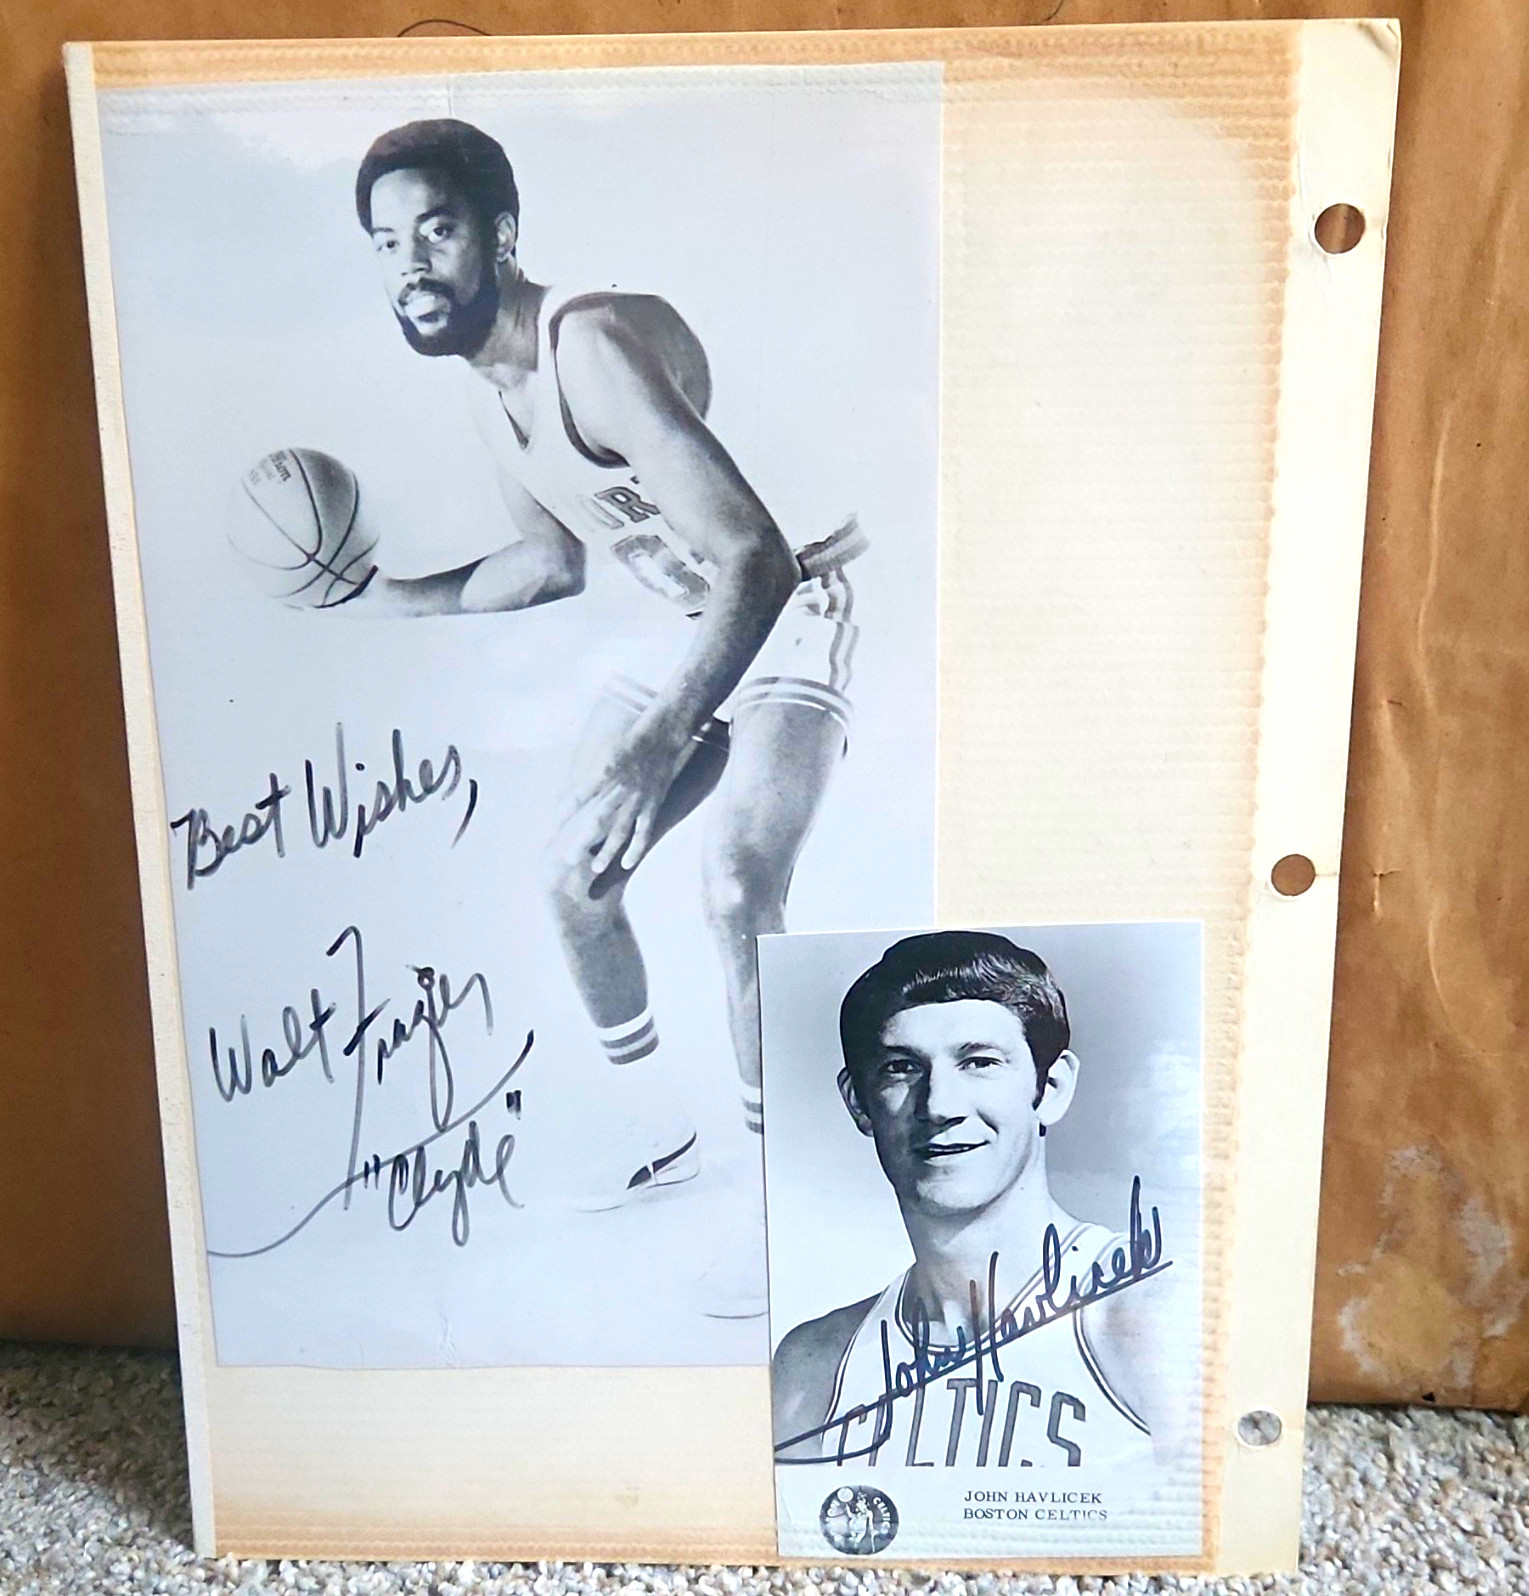 R
0
Best Wishes,
Walt Frazier
"Clyde"
John Havlicek
CELTICS
JOHN HAVLICEK
BOSTON CELTICS